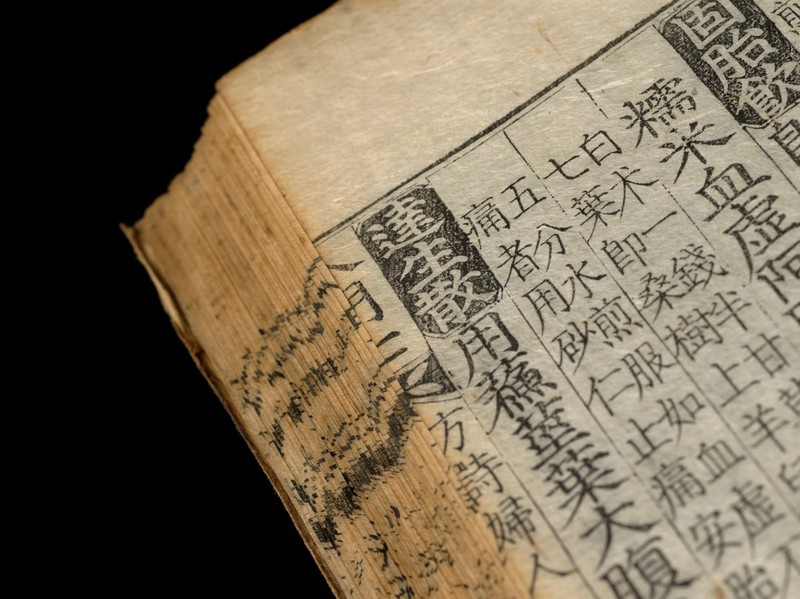 固胎飲
糯米血虛阿
白朮一錢半甘
七葉即桑樹上羊
五分水煎服如血虛不
痛者用砂仁止痛安胎
達生散用蘓莖葉大腹
月二
方詩婦人